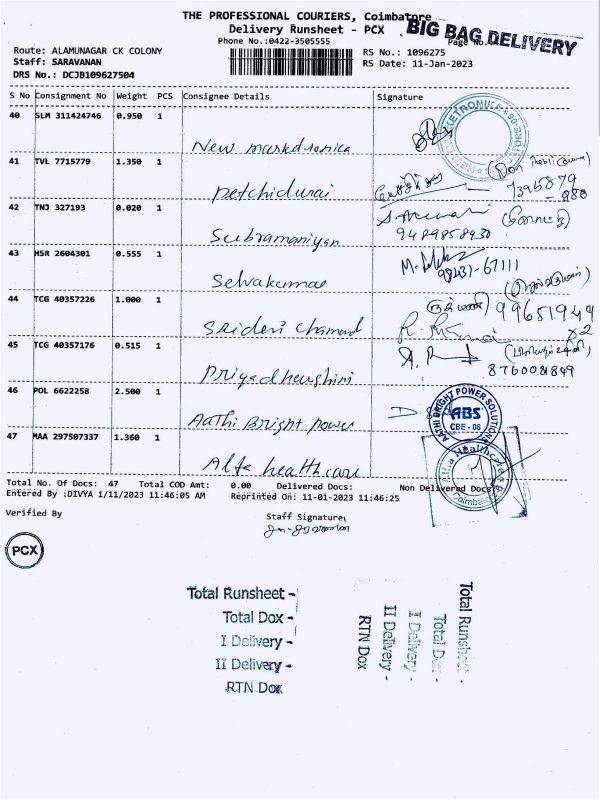 THE PROFESSIONAL COURIERS, Coimbatore
Delivery Runsheet - PCX
BIG BAG DELIVERY
Phone No.:0422-3505555
Page No.
Route: ALAMUNAGAR CK COLONY
RS No.: 1096275
Staff: SARAVANAN
RS Date: 11-Jan-2023
DRS No.: DCJB109627504
S No Consignment No Weight PCS Consignee Details Signature
40 SLM 311424746 0.950 1
41 TVL 7715779 1.350 1
Petchidurai
42 TNJ 327193 0.020 1
Subramaniyan
9489858930
43 HSR 2604301 0.555 1
Selvakumar
98431-67111
44 TCG 40357226 1.000 1
99651949
45 TCG 40357176 0.515 1
Priyadharshini
46 POL 6622258 2.500 1
Aathi Bright power
AATHI BRIGHT POWER SOLUTIONS
ABS
CBE - 06
47 MAA 297507337 1.360 1
Alfa healthcare
Alfa Healthcare
Coimbatore
Total No. Of Docs: 47 Total COD Amt: 0.00 Delivered Docs: Non Delivered Docs
Entered By :DIVYA 1/11/2023 11:46:05 AM Reprinted On: 11-01-2023 11:46:25
Verified By
Staff Signature
PCX
Total Runsheet -
Total Dox -
I Delivery -
II Delivery -
RTN Dox
Total Runsheet -
Total Dox -
I Delivery -
II Delivery -
RTN Dox